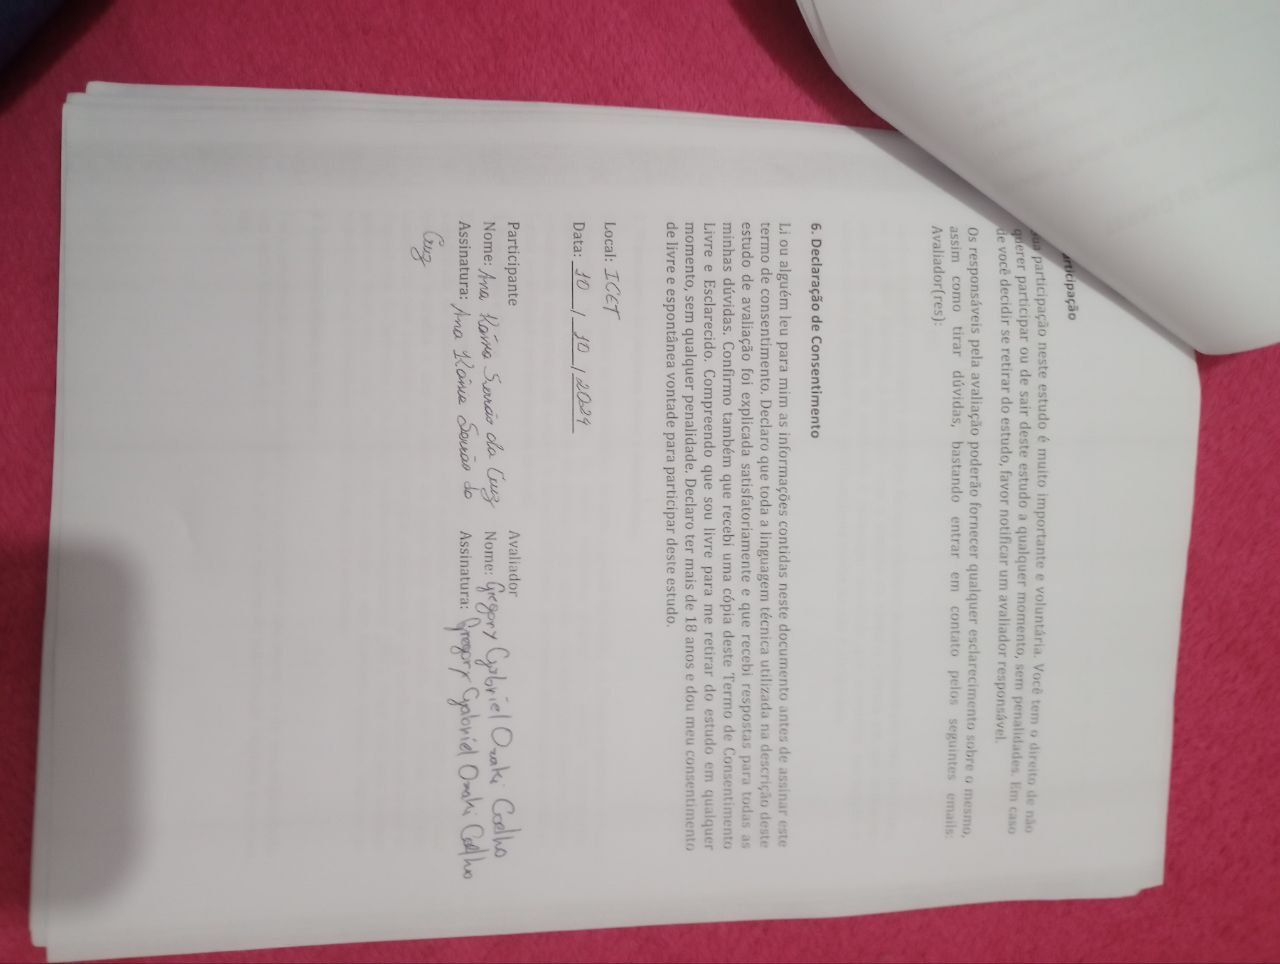 rticipação
participação neste estudo é muito importante e voluntária. Você tem o direito de não
querer participar ou de sair deste estudo a qualquer momento, sem penalidades. Em caso
de você decidir se retirar do estudo, favor notificar um avaliador responsável.
Os responsáveis pela avaliação poderão fornecer qualquer esclarecimento sobre o mesmo,
assim como tirar dúvidas, bastando entrar em contato pelos seguintes emails:
Avaliador(res):
6. Declaração de Consentimento
Li ou alguém leu para mim as informações contidas neste documento antes de assinar este
termo de consentimento. Declaro que toda a linguagem técnica utilizada na descrição deste
estudo de avaliação foi explicada satisfatoriamente e que recebi respostas para todas as
minhas dúvidas. Confirmo também que recebi uma cópia deste Termo de Consentimento
Livre e Esclarecido. Compreendo que sou livre para me retirar do estudo em qualquer
momento, sem qualquer penalidade. Declaro ter mais de 18 anos e dou meu consentimento
de livre e espontânea vontade para participar deste estudo.
Local: ICET
Data: 10 / 10 / 2024
Participante
Nome: Ana Kássia Serrão da Cruz
Assinatura: Ana Kássia Serrão da
Cruz
Avaliador
Nome: Gregory Gabriel Ozaki Coelho
Assinatura: Gregory Gabriel Ozaki Coelho